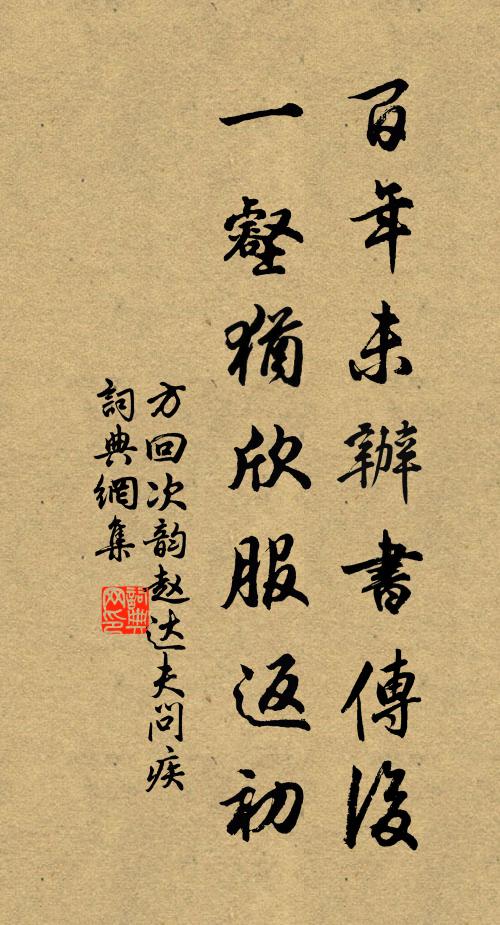 百年未辦書傳後
一壑猶欣服返初
方回次韵赵达夫问疾
詞典網集
詞典网印